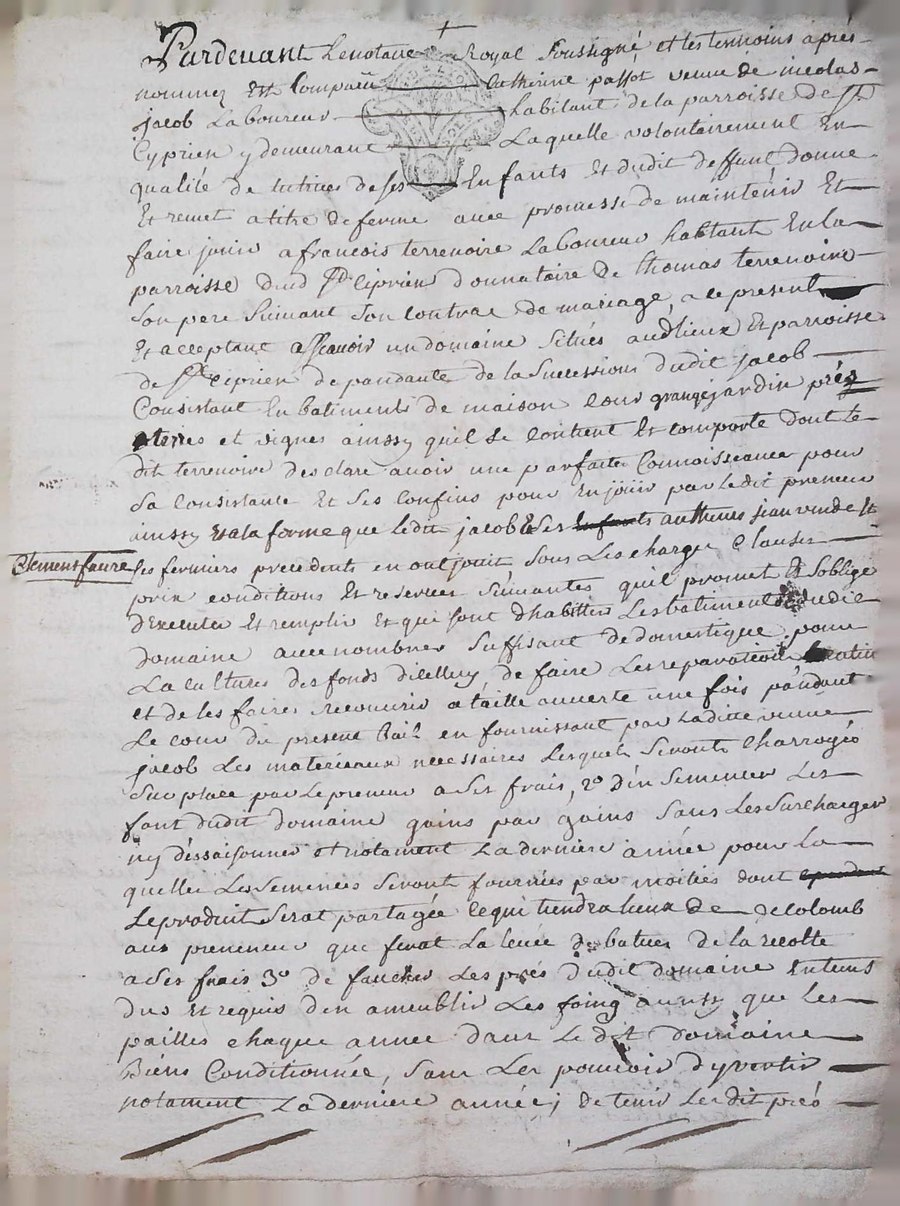 Pardevant Le notaire Royal Soussigné et les temoins après
nommez Est Comparüe Catherine passot veuve de nicolas
jacob Laboureur habitant de la parroisse de St
Cyprien y demeurant Laquelle volontairement En
qualité de tutrice de ses Enfants et dudit deffunt donne
Et remet a titre de ferme avec promesse de maintenir Et
faire jouir a francois terrenoire Laboureur habitant En la
parroisse dud St Ciprien donnataire de thomas terrenoire
Son pere Suivant Son Contrac de mariage, a ce present
Et acceptant assavoir un domaine Situés audt lieux Et parroisse
de St Ciprien depandante de la Successions dudit jacob
Consistant En batiments de maison Cour grange jardin prés
terres et vignes ainssy quil Se Contient Et Comporte dont Le
dit terrenoire desclare avoir une parfaite Connoissance pour
Sa Consistance Et Ses Confins pour En joüir par Ledit preneur
ainssy Et a la forme que ledit jacob Et Ses Enfants autheurs jean vende Et
Clement faure
Ses fermiers precedents en ont jouit Sous Les charges Clauses
prix conditions Et reserves Suivantes quil promet Et Soblige
dExecuter Et remplir Et qui Sont dhabitter Les batiments dudit
domaine avec nombres Suffisant de domestique pour
La Cultures des fonds dicelluy, de faire Les reparations
et de les faires recouvrir a taille ouverte une fois pandant
Le cour du present Bail en fournissant par Laditte veuve
jacob Les materiaux necessaires Lesquels Seront Charroyés
Sur place par Le preneur a Ses frais, 2o dEn Semencer Les
font dudit domaine gains par gains Sans Les Surcharger
ny déssaisonner et notament La derniere année pour La
quelle Les Semences Seront fournies par moitiés dont
Le produit Serat partagée Ce qui tiendra lieux de de Colomb
aux preneur que ferat La levée de batues de la recolte
a Ses frais 3o de faucher Les prés dudit domaine En tems
dus Et requis dEn ameublir Les foing aussy que Les
pailles chaque année dans Le dit domaine
Biens Conditionnée, Sans Les pouvoir dyvertir
notament La derniere année; de tenir Les dit prés